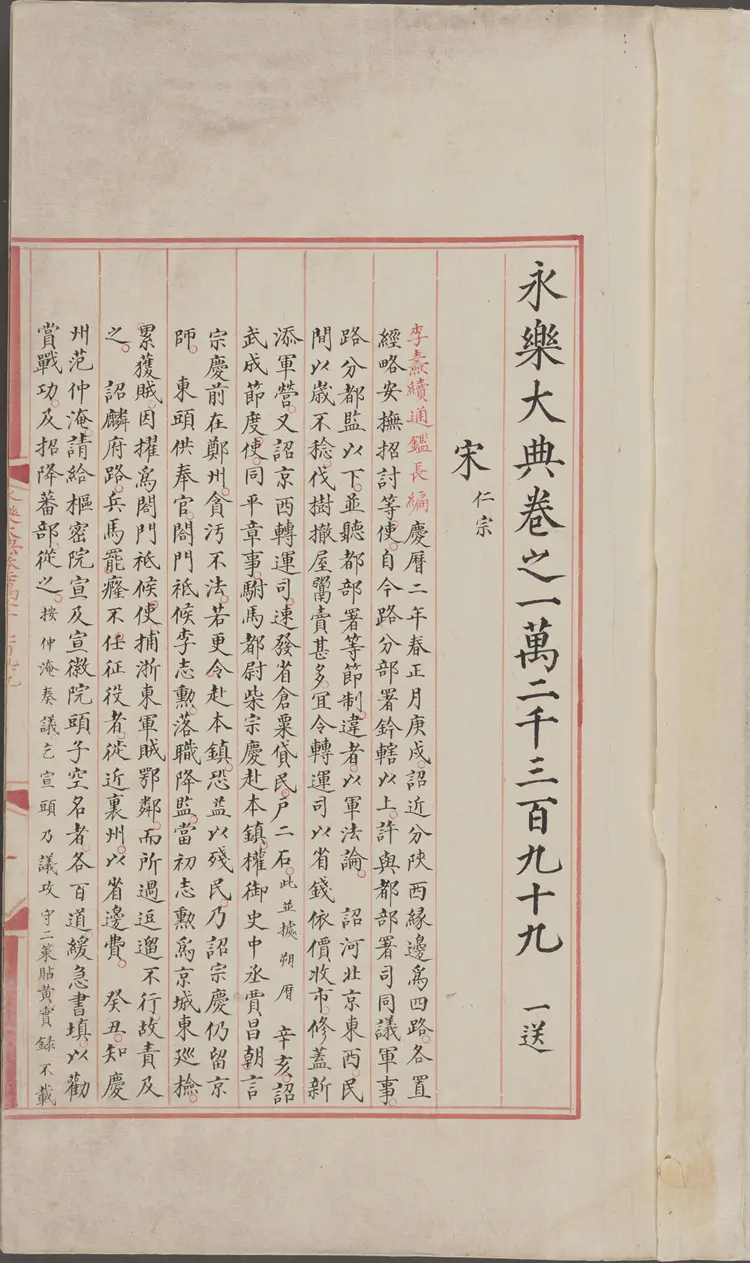 永樂大典卷之一萬二千三百九十九 一送
宋 仁宗
李燾續通鑑長編慶曆二年春正月庚戌。詔近分陜西緣邊爲四路。各置
經略安撫招討等使。自今路分部署鈐轄以上。許與都部署司同議軍事。
路分都監以下。並聽都部署等節制。違者。以軍法論。 詔河北京東西民
間以歲不稔。伐樹撤屋鬻賣甚多。宜令轉運司以省錢依價收市。修蓋新
添軍營。又詔京西轉運司。速發省倉粟貸民。戶二石。此並據朔曆 辛亥。詔
武成節度使。同平章事。駙馬都尉柴宗慶赴本鎮。權御史中丞賈昌朝言
宗慶前在鄭州。貪污不法。若更令赴本鎮。恐益以殘民。乃詔宗慶仍留京
師。 東頭供奉官。閤門祗候李志勲。落職降監。當初志勲爲京城東廵檢。
累獲賊。因擢爲閤門祗候。使捕浙東軍賊鄂鄰。而所過逗遛不行。故責及
之。 詔麟府路。兵馬罷癃不任征役者。徙近裏州。以省邊費。 癸丑。知慶
州范仲淹。請給樞密院宣及宣徽院頭子空名者。各百道。緩急書填。以勸
賞戰功。及招降蕃部。從之。按仲淹奏議乞宣頭乃議攻守二策貼黃實録不載